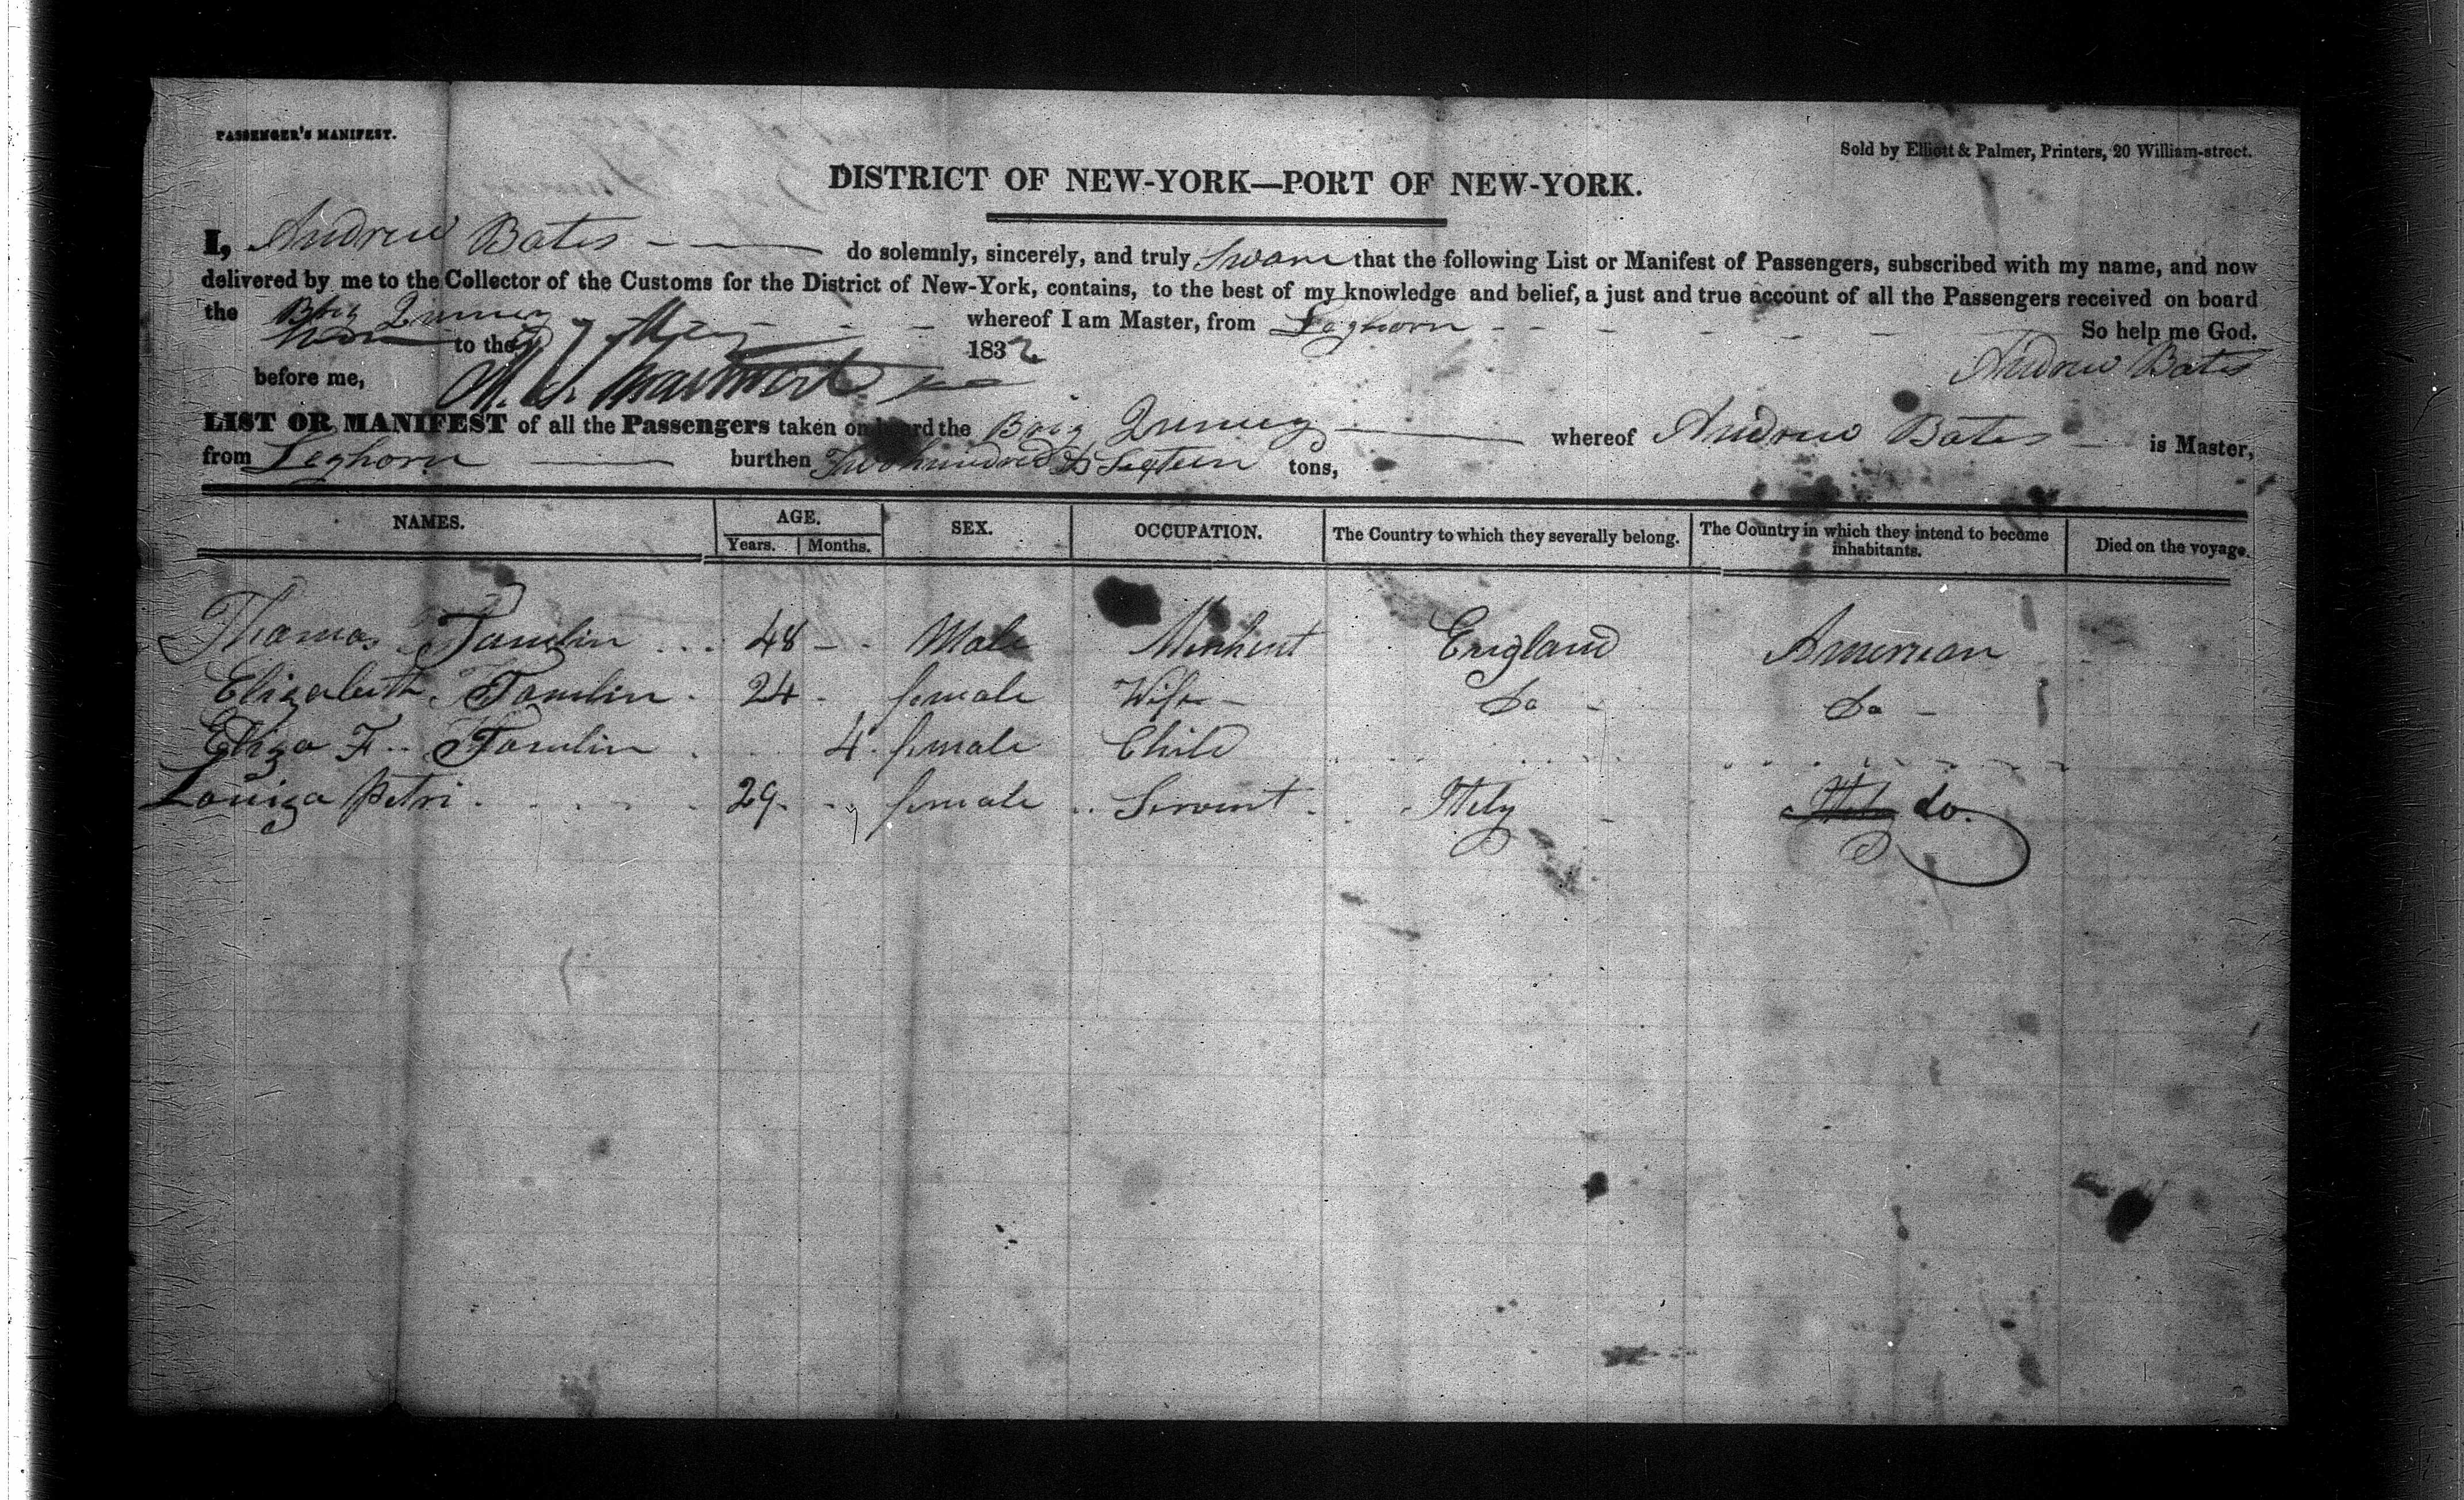 PASSENGER'S MANIFEST.
Sold by Elliott & Palmer, Printers, 20 William-street.
DISTRICT OF NEW-YORK—PORT OF NEW-YORK.
I, Andrew Bates do solemnly, sincerely, and truly Swore that the following List or Manifest of Passengers, subscribed with my name, and now
delivered by me to the Collector of the Customs for the District of New-York, contains, to the best of my knowledge and belief, a just and true account of all the Passengers received on board
the Brig Quincy whereof I am Master, from Leghorn So help me God.
to the 7 May 1832
Andrew Bates
before me,
LIST OR MANIFEST of all the Passengers taken on board the Brig Quincy whereof Andrew Bates is Master,
from Leghorn burthen Two hundred & Sixteen tons,
NAMES. AGE. SEX. OCCUPATION. The Country to which they severally belong. The Country in which they intend to become inhabitants. Died on the voyage.
Years. Months.
Thomas Tomlin 48 Male Merhent England American
Elizabeth Tomlin 24 female Wife Do Do
Eliza F. Tomlin 4 female Child
Louiza Petri 29 female Servent Itely do.